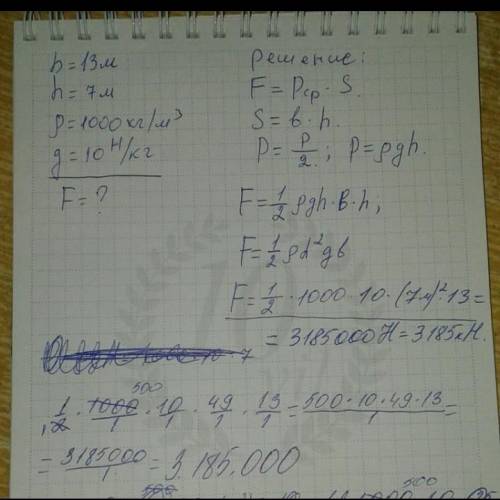 b = 13 м
h = 7 м
ρ = 1000 кг/м³
g = 10 Н/кг
F = ?
Решение:
F = Pср · S.
S = b · h.
P = P/2.; P = ρgh.
F = 1/2 ρgh · b · h;
F = 1/2 ρd²gb
F = 1/2 · 1000 · 10 · (7м)² · 13 =
= 3185000 Н = 3185 кН.
500
1/2 · 1000/1 · 10/1 · 49/1 · 13/1 = 500 · 10 · 49 · 13/1 =
= 3185000/1 = 3.185.000